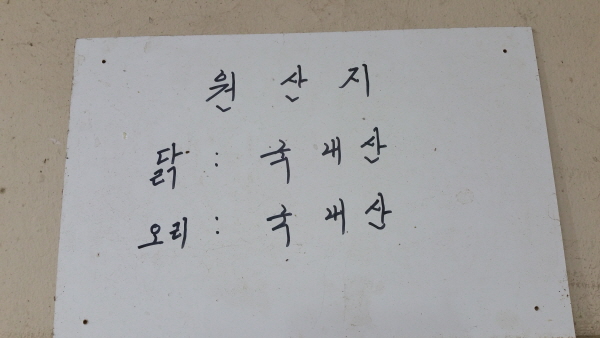 원 산 지
닭 : 국 내 산
오리 : 국 내 산